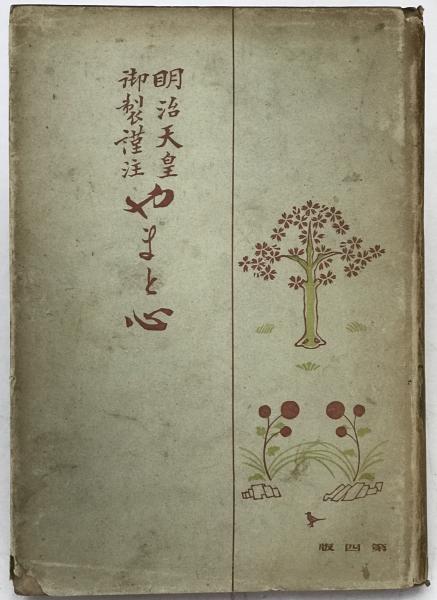 明治天皇
御製謹注
やまと心
第四版